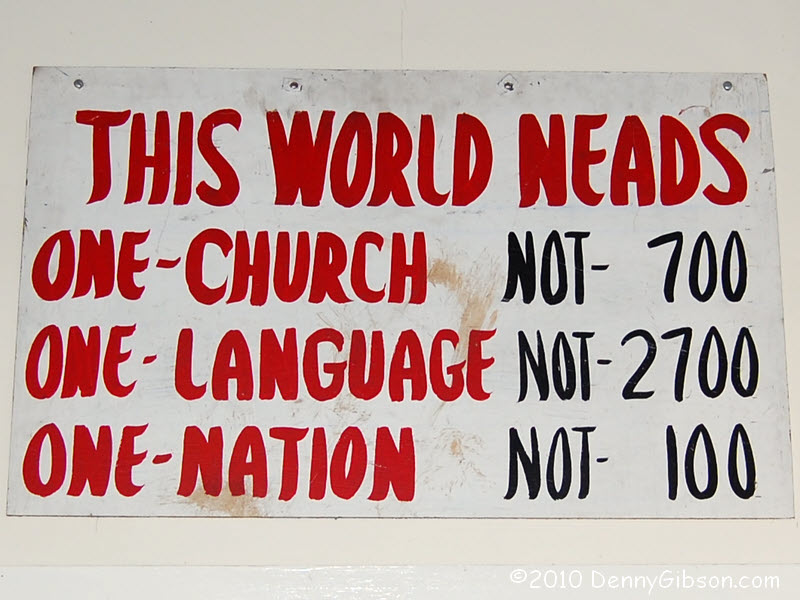 THIS WORLD NEADS
ONE-CHURCH NOT- 700
ONE-LANGUAGE NOT-2700
ONE-NATION NOT- 100
©2010 DennyGibson.com